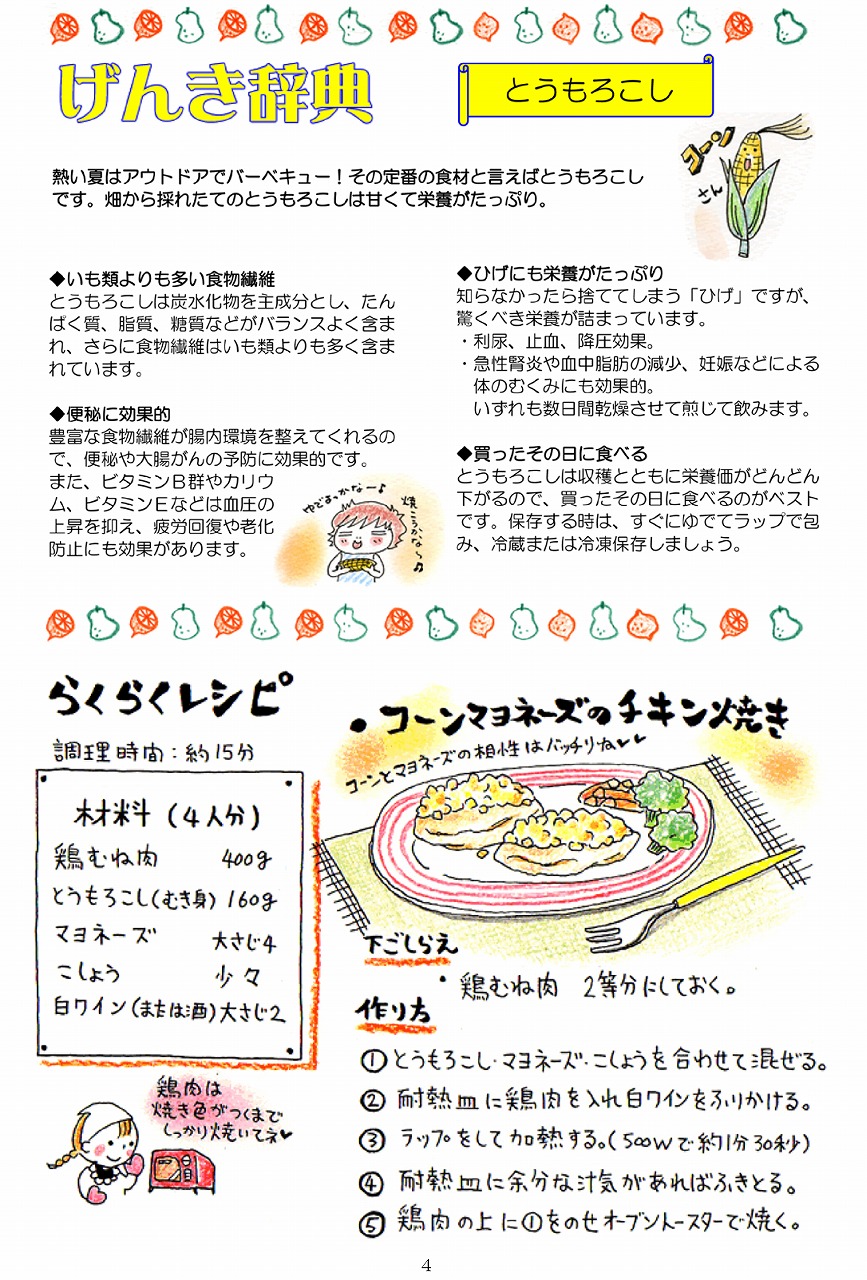 げんき辞典
とうもろこし
コーン
さん
熱い夏はアウトドアでバーベキュー！その定番の食材と言えばとうもろこし
です。畑から採れたてのとうもろこしは甘くて栄養がたっぷり。
◆いも類よりも多い食物繊維
とうもろこしは炭水化物を主成分とし、たん
ぱく質、脂質、糖質などがバランスよく含ま
れ、さらに食物繊維はいも類よりも多く含ま
れています。
◆便秘に効果的
豊富な食物繊維が腸内環境を整えてくれるの
で、便秘や大腸がんの予防に効果的です。
また、ビタミンＢ群やカリウ
ム、ビタミンＥなどは血圧の
上昇を抑え、疲労回復や老化
防止にも効果があります。
ゆでよっかなー♪
焼こうかな～♫
◆ひげにも栄養がたっぷり
知らなかったら捨ててしまう「ひげ」ですが、
驚くべき栄養が詰まっています。
・利尿、止血、降圧効果。
・急性腎炎や血中脂肪の減少、妊娠などによる
体のむくみにも効果的。
いずれも数日間乾燥させて煎じて飲みます。
◆買ったその日に食べる
とうもろこしは収穫とともに栄養価がどんどん
下がるので、買ったその日に食べるのがベスト
です。保存する時は、すぐにゆでてラップで包
み、冷蔵または冷凍保存しましょう。
らくらくレシピ
調理時間：約15分
材料（4人分）
鶏むね肉 400g
とうもろこし(むき身) 160g
マヨネーズ 大さじ4
こしょう 少々
白ワイン(または酒)大さじ2
鶏肉は
焼き色がつくまで
しっかり焼いてネ♥
・コーンマヨネーズのチキン焼き
コーンとマヨネーズの相性はバッチリね♥♥
下ごしらえ
・鶏むね肉 2等分にしておく。
作り方
①とうもろこし・マヨネーズ・こしょうを合わせて混ぜる。
②耐熱皿に鶏肉を入れ白ワインをふりかける。
③ラップをして加熱する。(500Wで約1分30秒)
④耐熱皿に余分な汁気があればふきとる。
⑤鶏肉の上に①をのせオーブントースターで焼く。
4